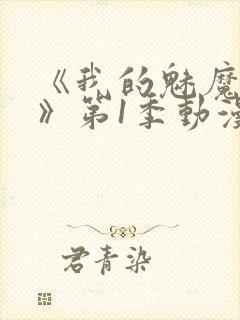 《我的魅魔
》第1季動漫
君青染